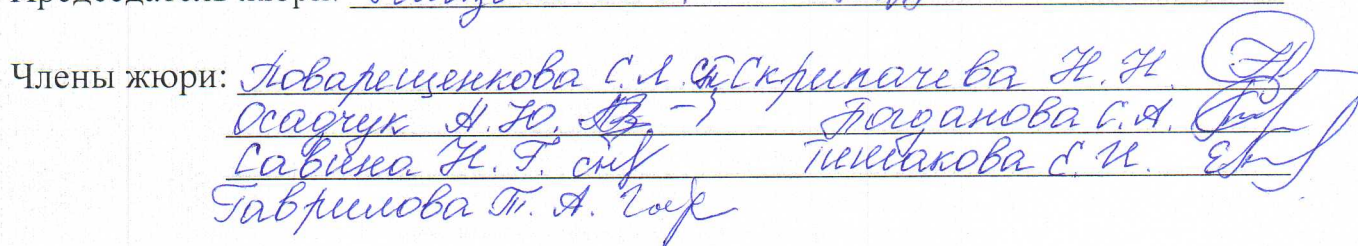 Председатель жюри:
Члены жюри: Поварещенкова С.Л. Скрипачева Н.Н.
Осадчук А.Ю. Богданова С.А.
Савина Н.Г. Е.И.
Гаврилова Т.А.